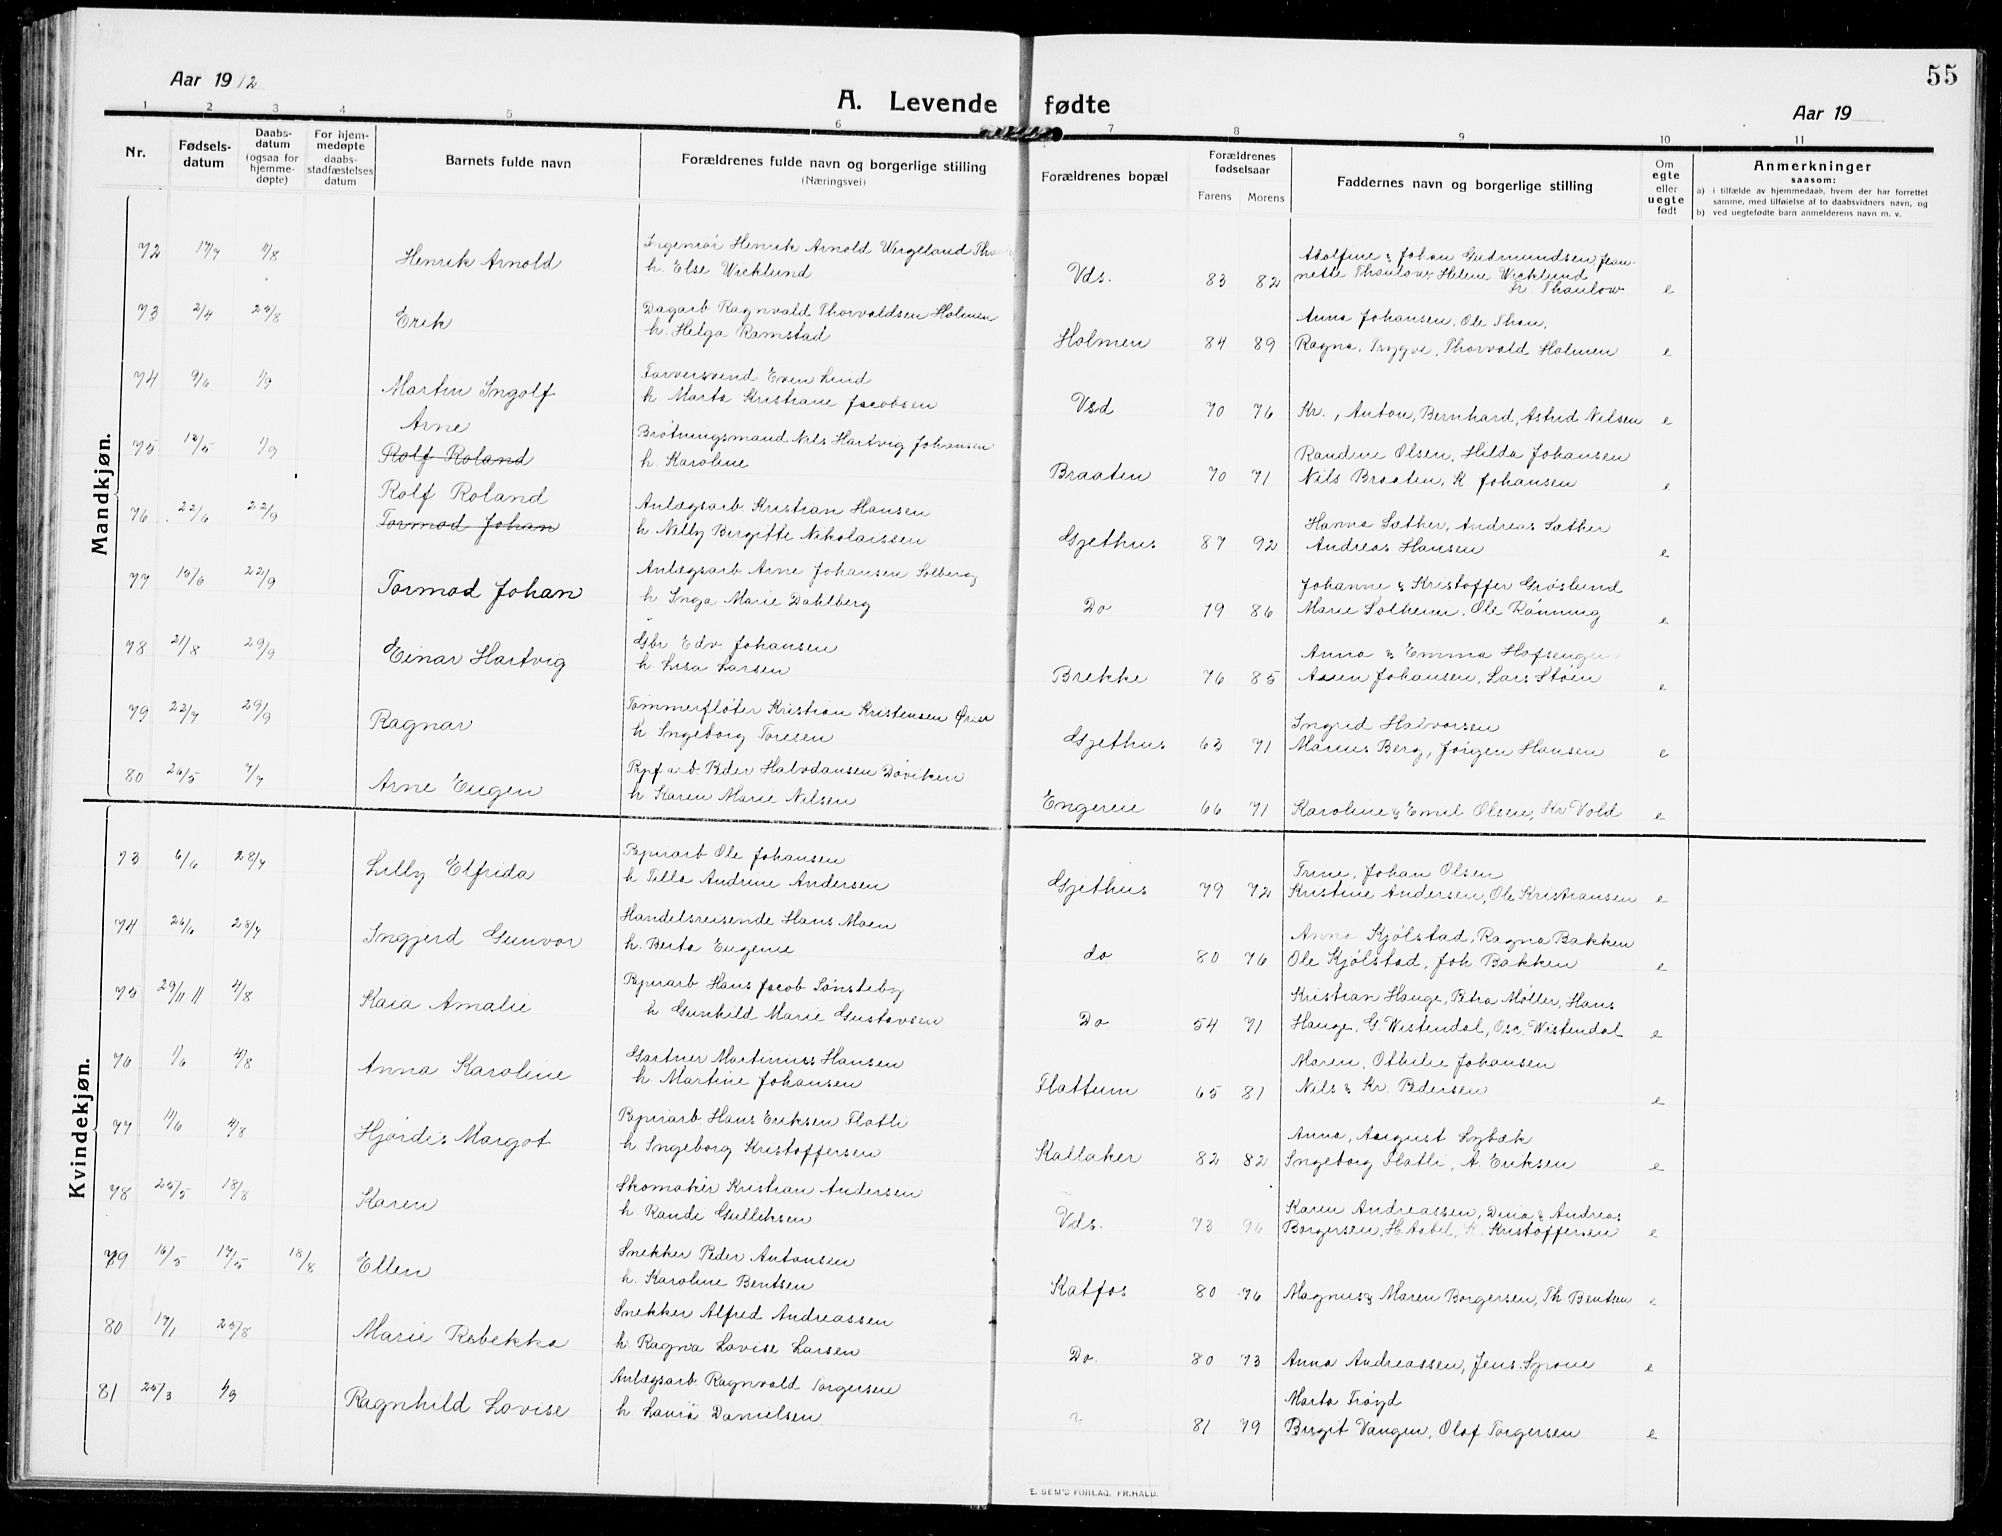 Aar 1912
A. Levende fødte
Aar 19
55
1 2 3 4 5 6 7 8 9 10 11
Nr.
Fødsels-
datum
Daabs-
datum
(ogsaa for
hjemme-
døpte)
For hjem-
medøpte
daabs-
stadfæstelses
datum
Barnets fulde navn
Forældrenes fulde navn og borgerlige stilling
(Næringsvei)
Forældrenes bopæl
Forældrenes
fødselsaar
Farens Morens
Faddernes navn og borgerlige stilling
Om
egte
eller
uegte
født
Anmerkninger
saasom:
a) i tilfælde av hjemmedaab, hvem der har forrettet
samme, med tilføielse af to daabsvidners navn, og
b) ved uegtefødte barn anmelderens navn m. v.
Mandkjøn.
72 17/7 11/8 Henrik Arnold
Ingeniør Henrik Arnold Wergeland
h. Else Wicklund
Vds. 83 82
Adolfine & Johan Gudmundsen, Jean-
nette Thaulow, Helene Wicklund
Fr. Thaulow e
73 2/4 25/8 Erik
Dagarb Ragnvald Thorvaldsen Holmen
h. Helga Ramstad
Holmen 84 89
Anna Johansen, Ole Thon,
Ragna, Trygve, Thorvald Holmen e
74 9/6 1/9 Martin Ingolf
Farversvend Even Lind
h Marta Kristiane Jacobsen
Vsd 70 76
Kr., Anton, Bernhard, Astrid Nilsen e
75 12/5 1/9 Arne
Rolf Roland
Brøtningsmand Nils Hartvig Johansen
h. Karoline
Braaten 70 71
Randine Olsen, Hilda Johansen
Nils Braaten, K Johansen e
76 22/6 22/9 Rolf Roland
Tormod Johan
Anlægsarb. Kristian Hansen
h Nelly Birgitte Nikolaissen
Gjethus 87 92
Hanna Sæther, Andreas Sæther
Andreas Hansen e
77 15/6 22/9 Tormod Johan
Anlægsarb Arne Johansen Solberg
h Inga Marie Dahlberg
Do 79 86
Johanne & Kristoffer Grøslund
Marie Solheim, Ole Rønning e
78 21/8 29/9 Einar Hartvig
Gbr Edv Johansen
h Lisa Larsen
Brekke 76 85
Anna & Emma Hafsengen
Assen Johansen, Lars Støen e
79 22/7 29/9 Ragnar
Tømmerfløter Kristian Kristensen
h Ingeborg Toresen
Gjethus 63 71
Ingrid Halvorsen
Marius Berg, Jørgen Hansen e
80 26/5 7/7 Arne Eugen
Ppf arb Peder Halvdansen Døviken
h Karen Marie Nilsen
Engerne 66 71
Karoline & Emil Olsen, Kr Vold e
Kvindekjøn.
73 6/6 28/7 Lilly Elfrida
Ppirarb Ole Johansen
h Tilla Andrine Andersen
Gjethus 79 72
Trine, Johan Olsen
Kristine Andersen, Ole Kristiansen e
74 26/6 28/7 Ingjerd Gunvor
Handelsreisende Hans Moen
h. Berta Eugenie
do 80 76
Anna Kjølstad, Ragna Bakken
Ole Kjølstad, Joh Bakken e
75 29/11 11 4/8 Kaia Amalie
Ppirarb Hans Jacob Sønsteby
h Gunhild Marie Gustavsen
Do 54 71
Kristian Hauge, Petra Møller, Hans
Hauge, G. Wistendal, Osc. Wistendal e
76 1/6 4/8 Anna Karoline
Gartner Martinius Hansen
h Martine Johansen
Flattum 65 81
Maren, Othilie Johansen
Nils & Kr. Pedersen e
77 11/6 4/8 Hjørdis Margot
Ppirarb. Hans Eriksen Flatli
h Ingeborg Kristoffersen
Kallaker 82 82
Anna, August Lybæk
Ingeborg Flatli, A. Eriksen e
78 25/5 18/8 Karen
Skomaker Kristian Andersen
h Randi Gulliksen
Vds. 73 96
Karen Andreassen, Dina & Andreas
Borgersen, H. Aabel, K. Kristoffersen e
79 16/5 17/5 18/8 Ellen
Snekker Peder Antonsen
h. Karoline Bentsen
Katfos 80 76
Magnus & Maren Borgersen, Th Bentsen e
80 17/1 25/8 Marie Rebekka
Snekker Alfred Andreassen
h. Ragna Lovise Larsen
Do. 80 73
Anna Andreassen, Jens e
81 25/3 1/9 Ragnhild Lovise
Anlægsarb. Ragnvald Torgersen
h. Danielsen
? 81 79
Marta Frøyd
Birgit Vangen, Olaf Torgersen e
E. SEM'S FORLAG, FR.HALD.